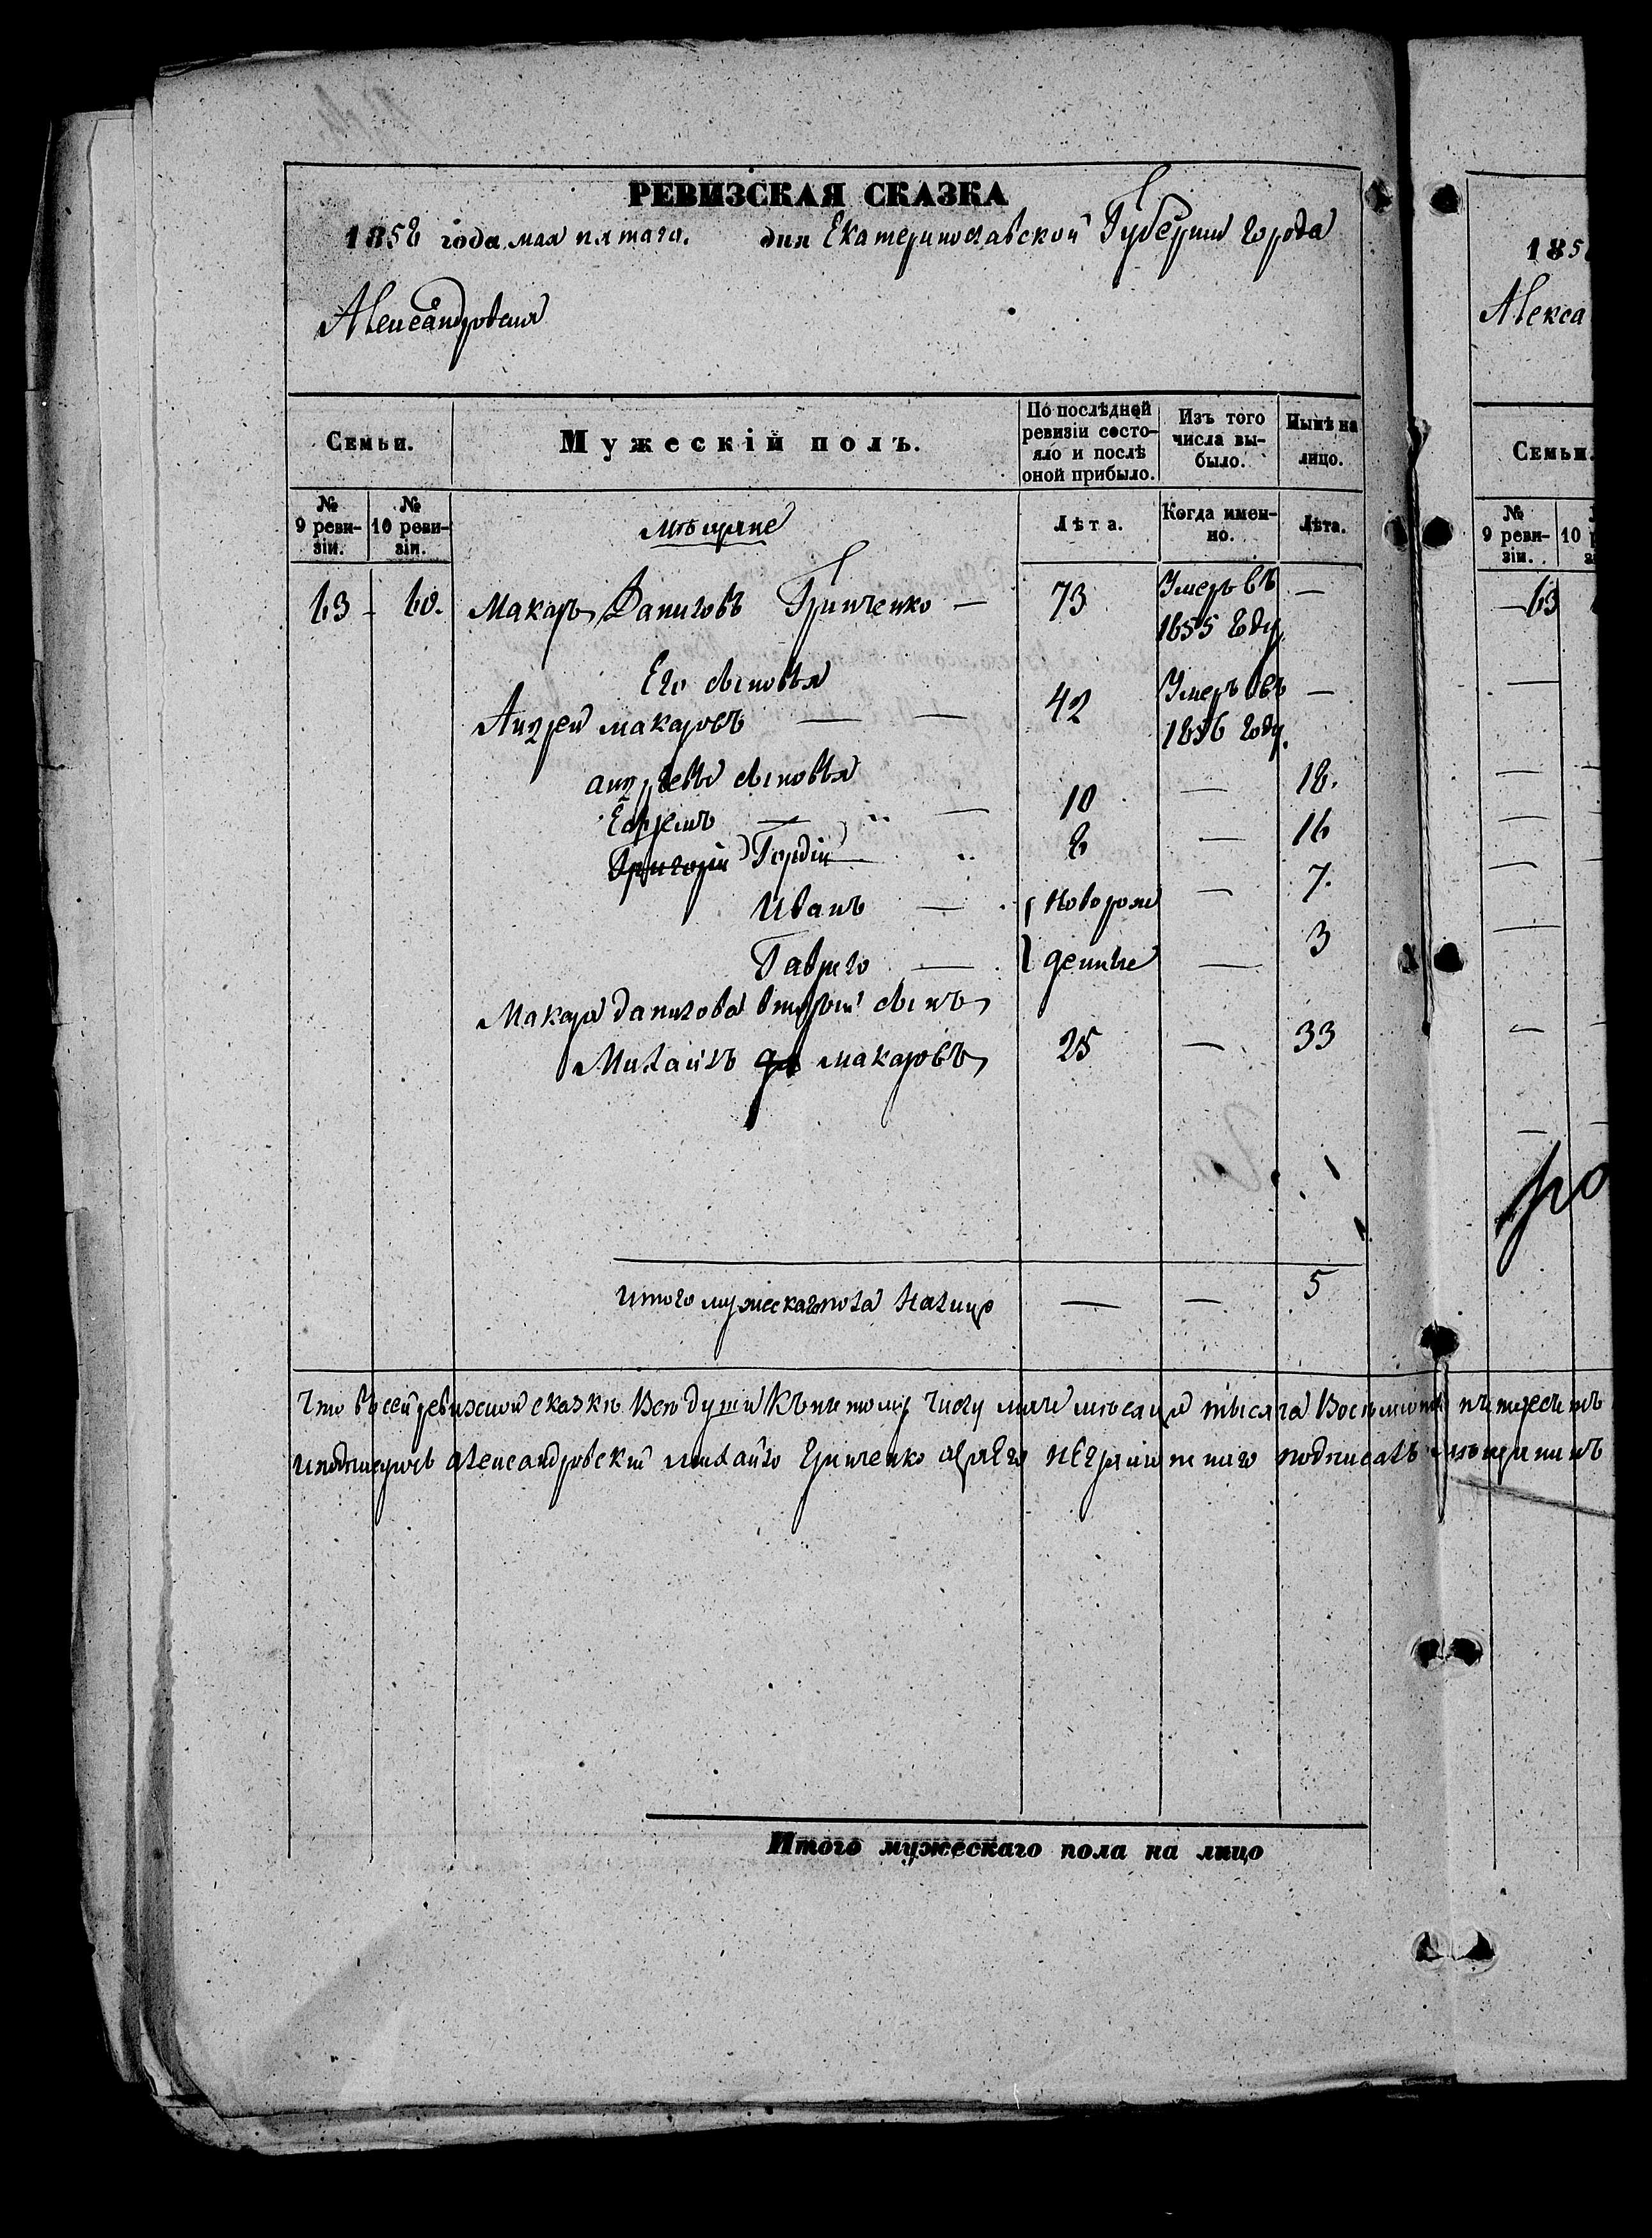 РЕВИЗСКАЯ СКАЗКА
1858 года мая пятаго. дня Екатеринославской Губернии города
Александровска
Семьи.
Мужескій полъ.
По послѣдней ревизіи состояло и послѣ оной прибыло.
Изъ того числа выбыло.
Нынѣ на лицо.
№ 9 ревизіи.
№ 10 ревизіи.
мѣщяне
Лѣта.
Когда именно.
Лѣта.
63 - 60. Макаръ Даниловъ Гринченко — 73 Умеръ въ 1855 году —
Его сыновья
Андрей макаровъ — — 42 Умеръ въ 1856 году. —
андрѣевы сыновья
Ефремъ — „ — 10 — 18.
Григорій Гордій — „ 8 — 16
Иванъ — новорож — 7.
Гаврило — денные — 3
Макара данилова вторый сынъ
Михайлъ макаровъ 25 — 33
итого мужескаго пола налицо — — 5
Что въ сей ревизской сказкѣ Всѣ души Къ пятому числу мая мѣсяца тысяча Восемсотъ пятдесятъ
александровский михайло Гринченко неграмотнаго подписалъ мѣщанинъ
Итого мужескаго пола на лицо
185
Алекса
Семьи.
№ 9 ревизіи.
10
63